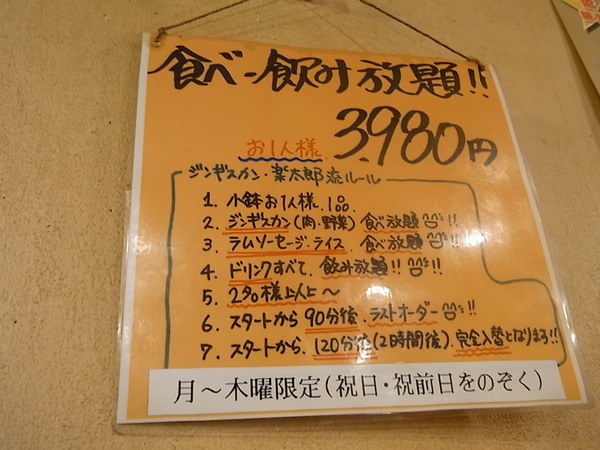 食べ-飲み放題!!
お1人様 3,980円
ジンギスカン・楽太郎流ルール
1. 小鉢お1人様.1コ
2. ジンギスカン(肉・野菜) 食べ放題!!
3. ラムソーセージ・ライス. 食べ放題!!
4. ドリンクすべて. 飲み放題!! !!
5. 2名様以上～
6. スタートから 90分後. ラストオーダー!!
7. スタートから. 120分後(2時間後). 完全入替となります!!
月～木曜限定(祝日・祝前日をのぞく)